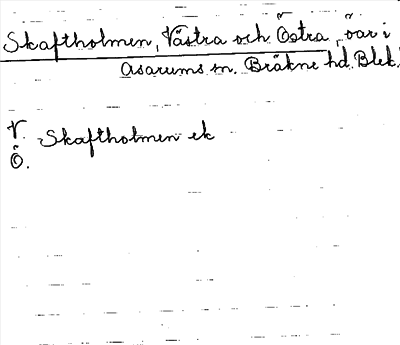 Skaftholmen, Västra och Östra, öar i
Asarums sn. Bräkne hd. Blek.
V. Skaftholmen ek
Ö.